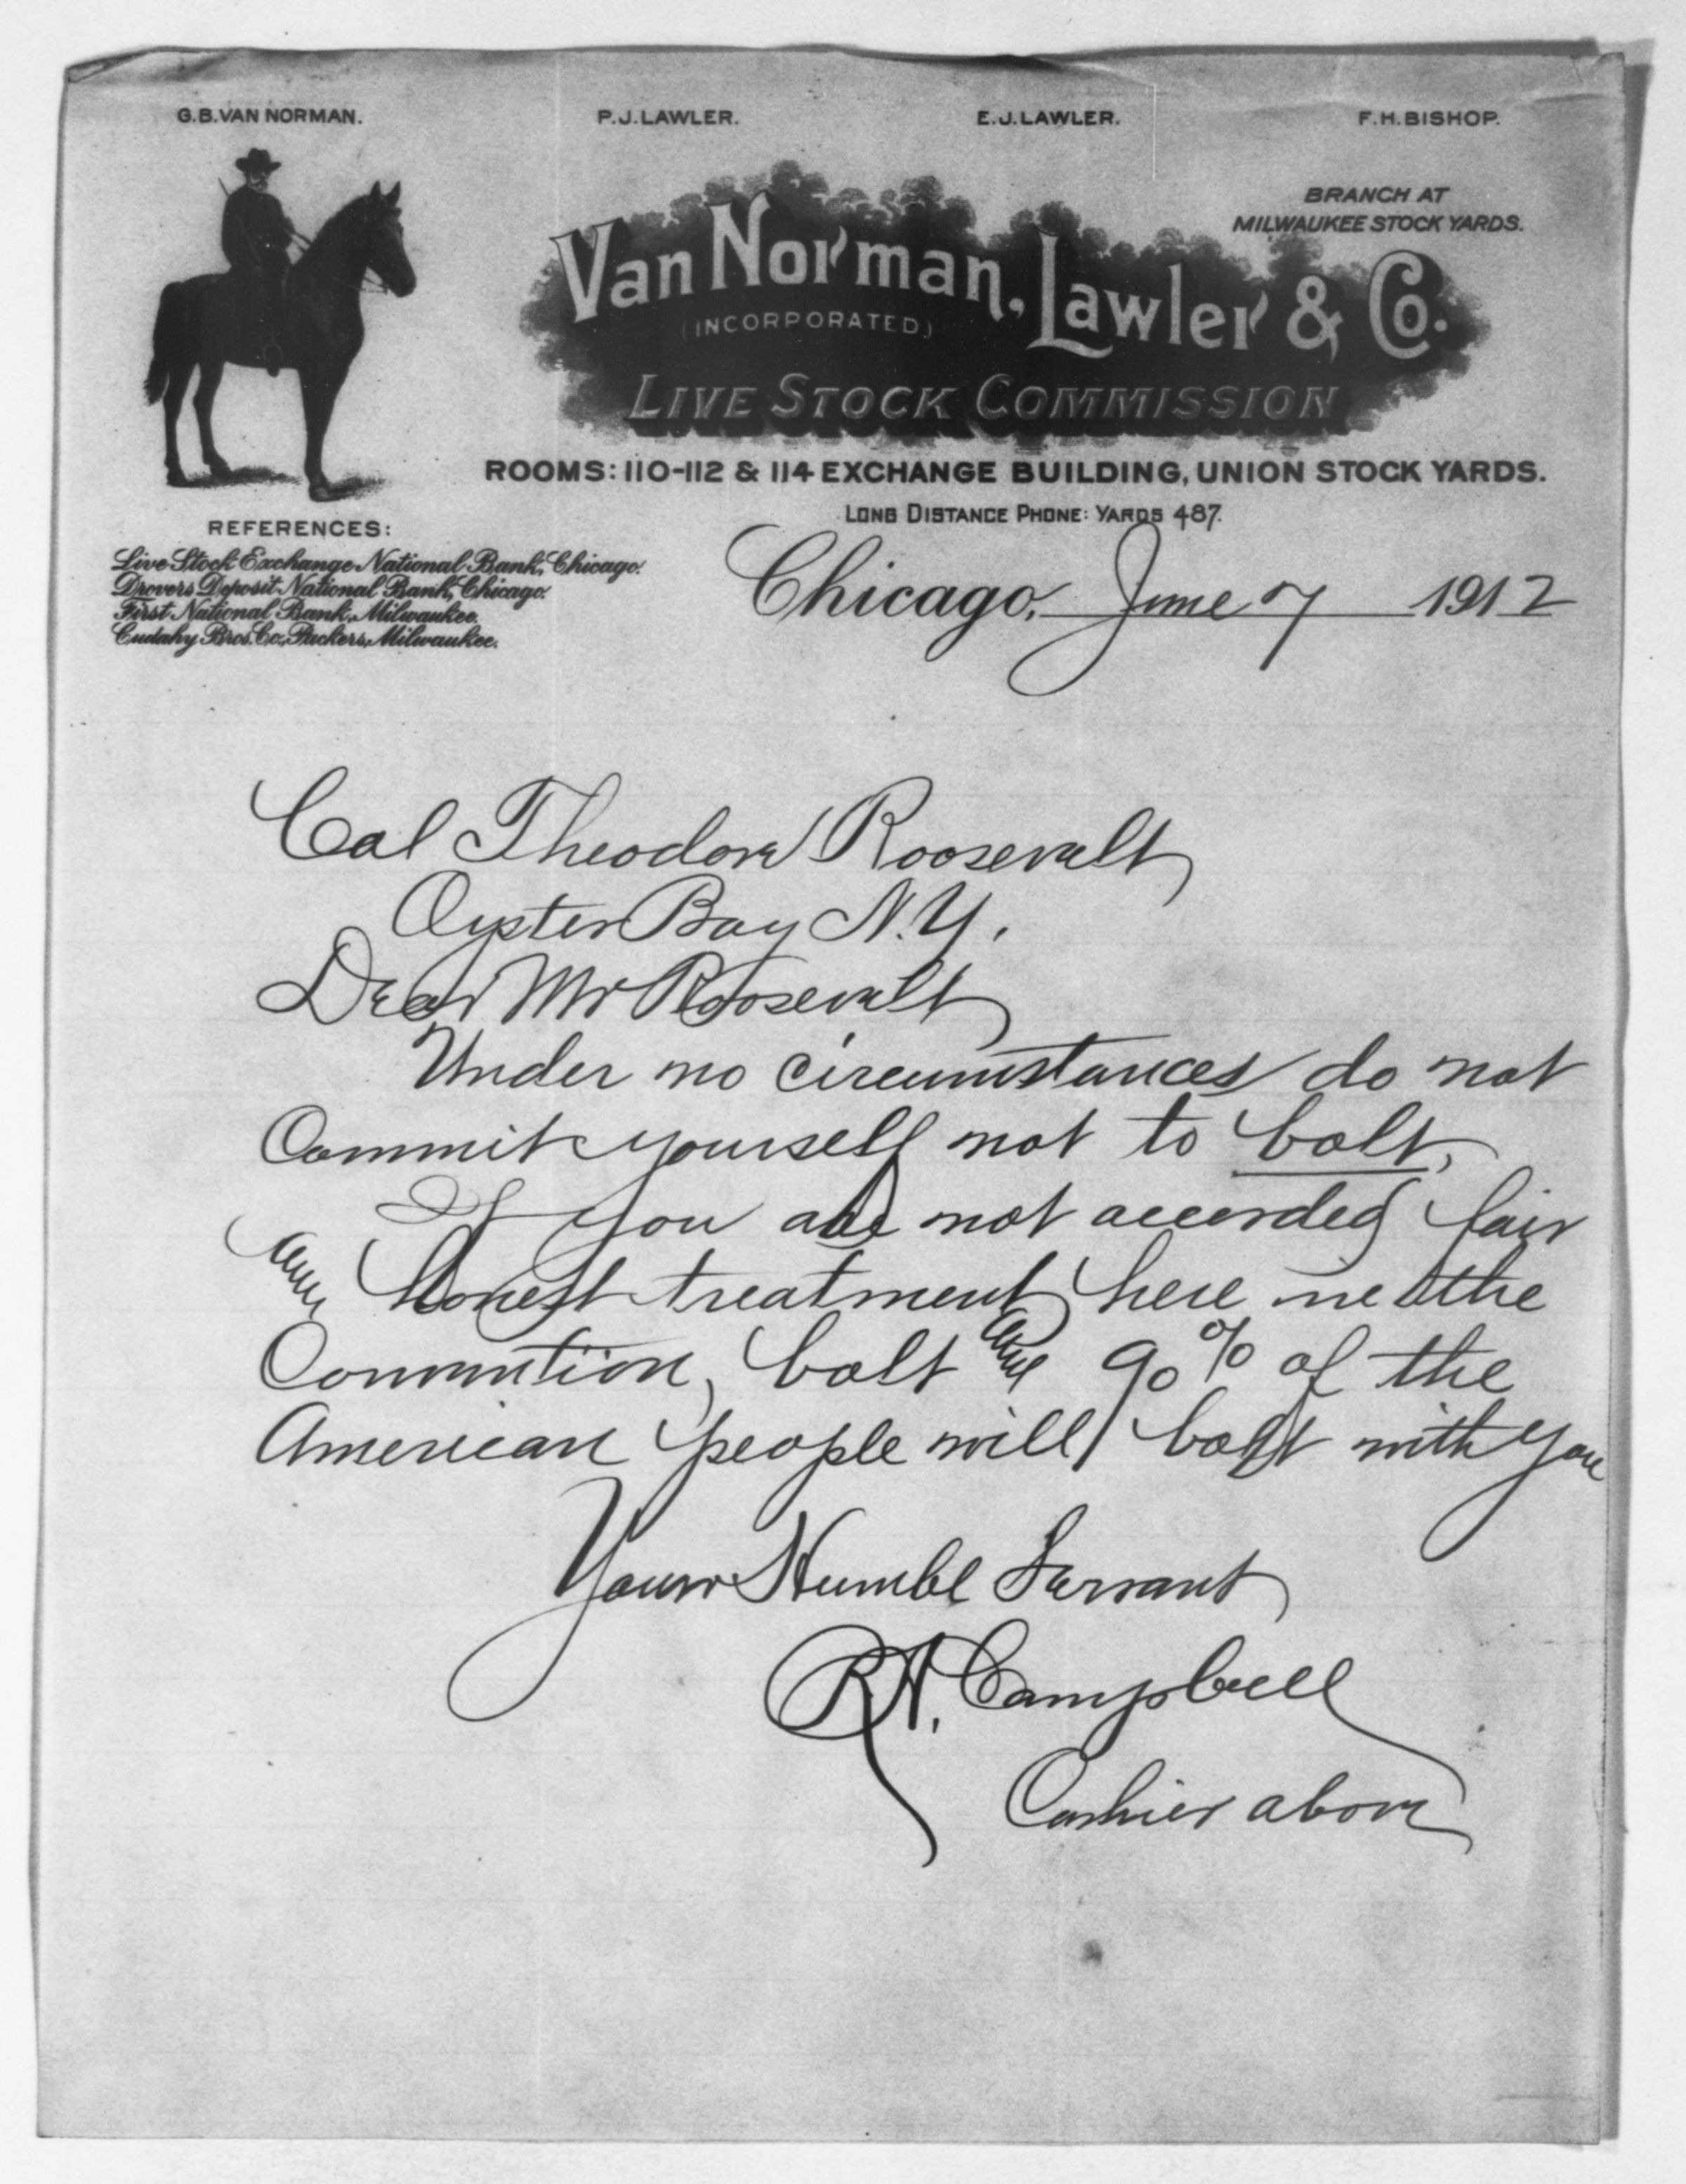 G.B. VAN NORMAN. P.J. LAWLER. E.J. LAWLER. F.H. BISHOP.
BRANCH AT
MILWAUKEE STOCK YARDS.
Van Norman, Lawler & Co.
(INCORPORATED.)
LIVE STOCK COMMISSION
ROOMS: 110-112 & 114 EXCHANGE BUILDING, UNION STOCK YARDS.
LONG DISTANCE PHONE: YARDS 487.
REFERENCES:
Live Stock Exchange National Bank, Chicago.
Drovers Deposit National Bank, Chicago.
First National Bank, Milwaukee.
Cudahy Bros. Co., Packers, Milwaukee.
Chicago, June 7 1912
Col Theodore Roosevelt
Oyster Bay N.Y.
Dear Mr Roosevelt
Under no circumstances do not
Commit yourself not to bolt,
If you are not accorded fair
and honest treatment here in the
Convention, bolt and 90% of the
American people will bolt with you
Your Humble Servant
R.H. Campbell
Cashier above